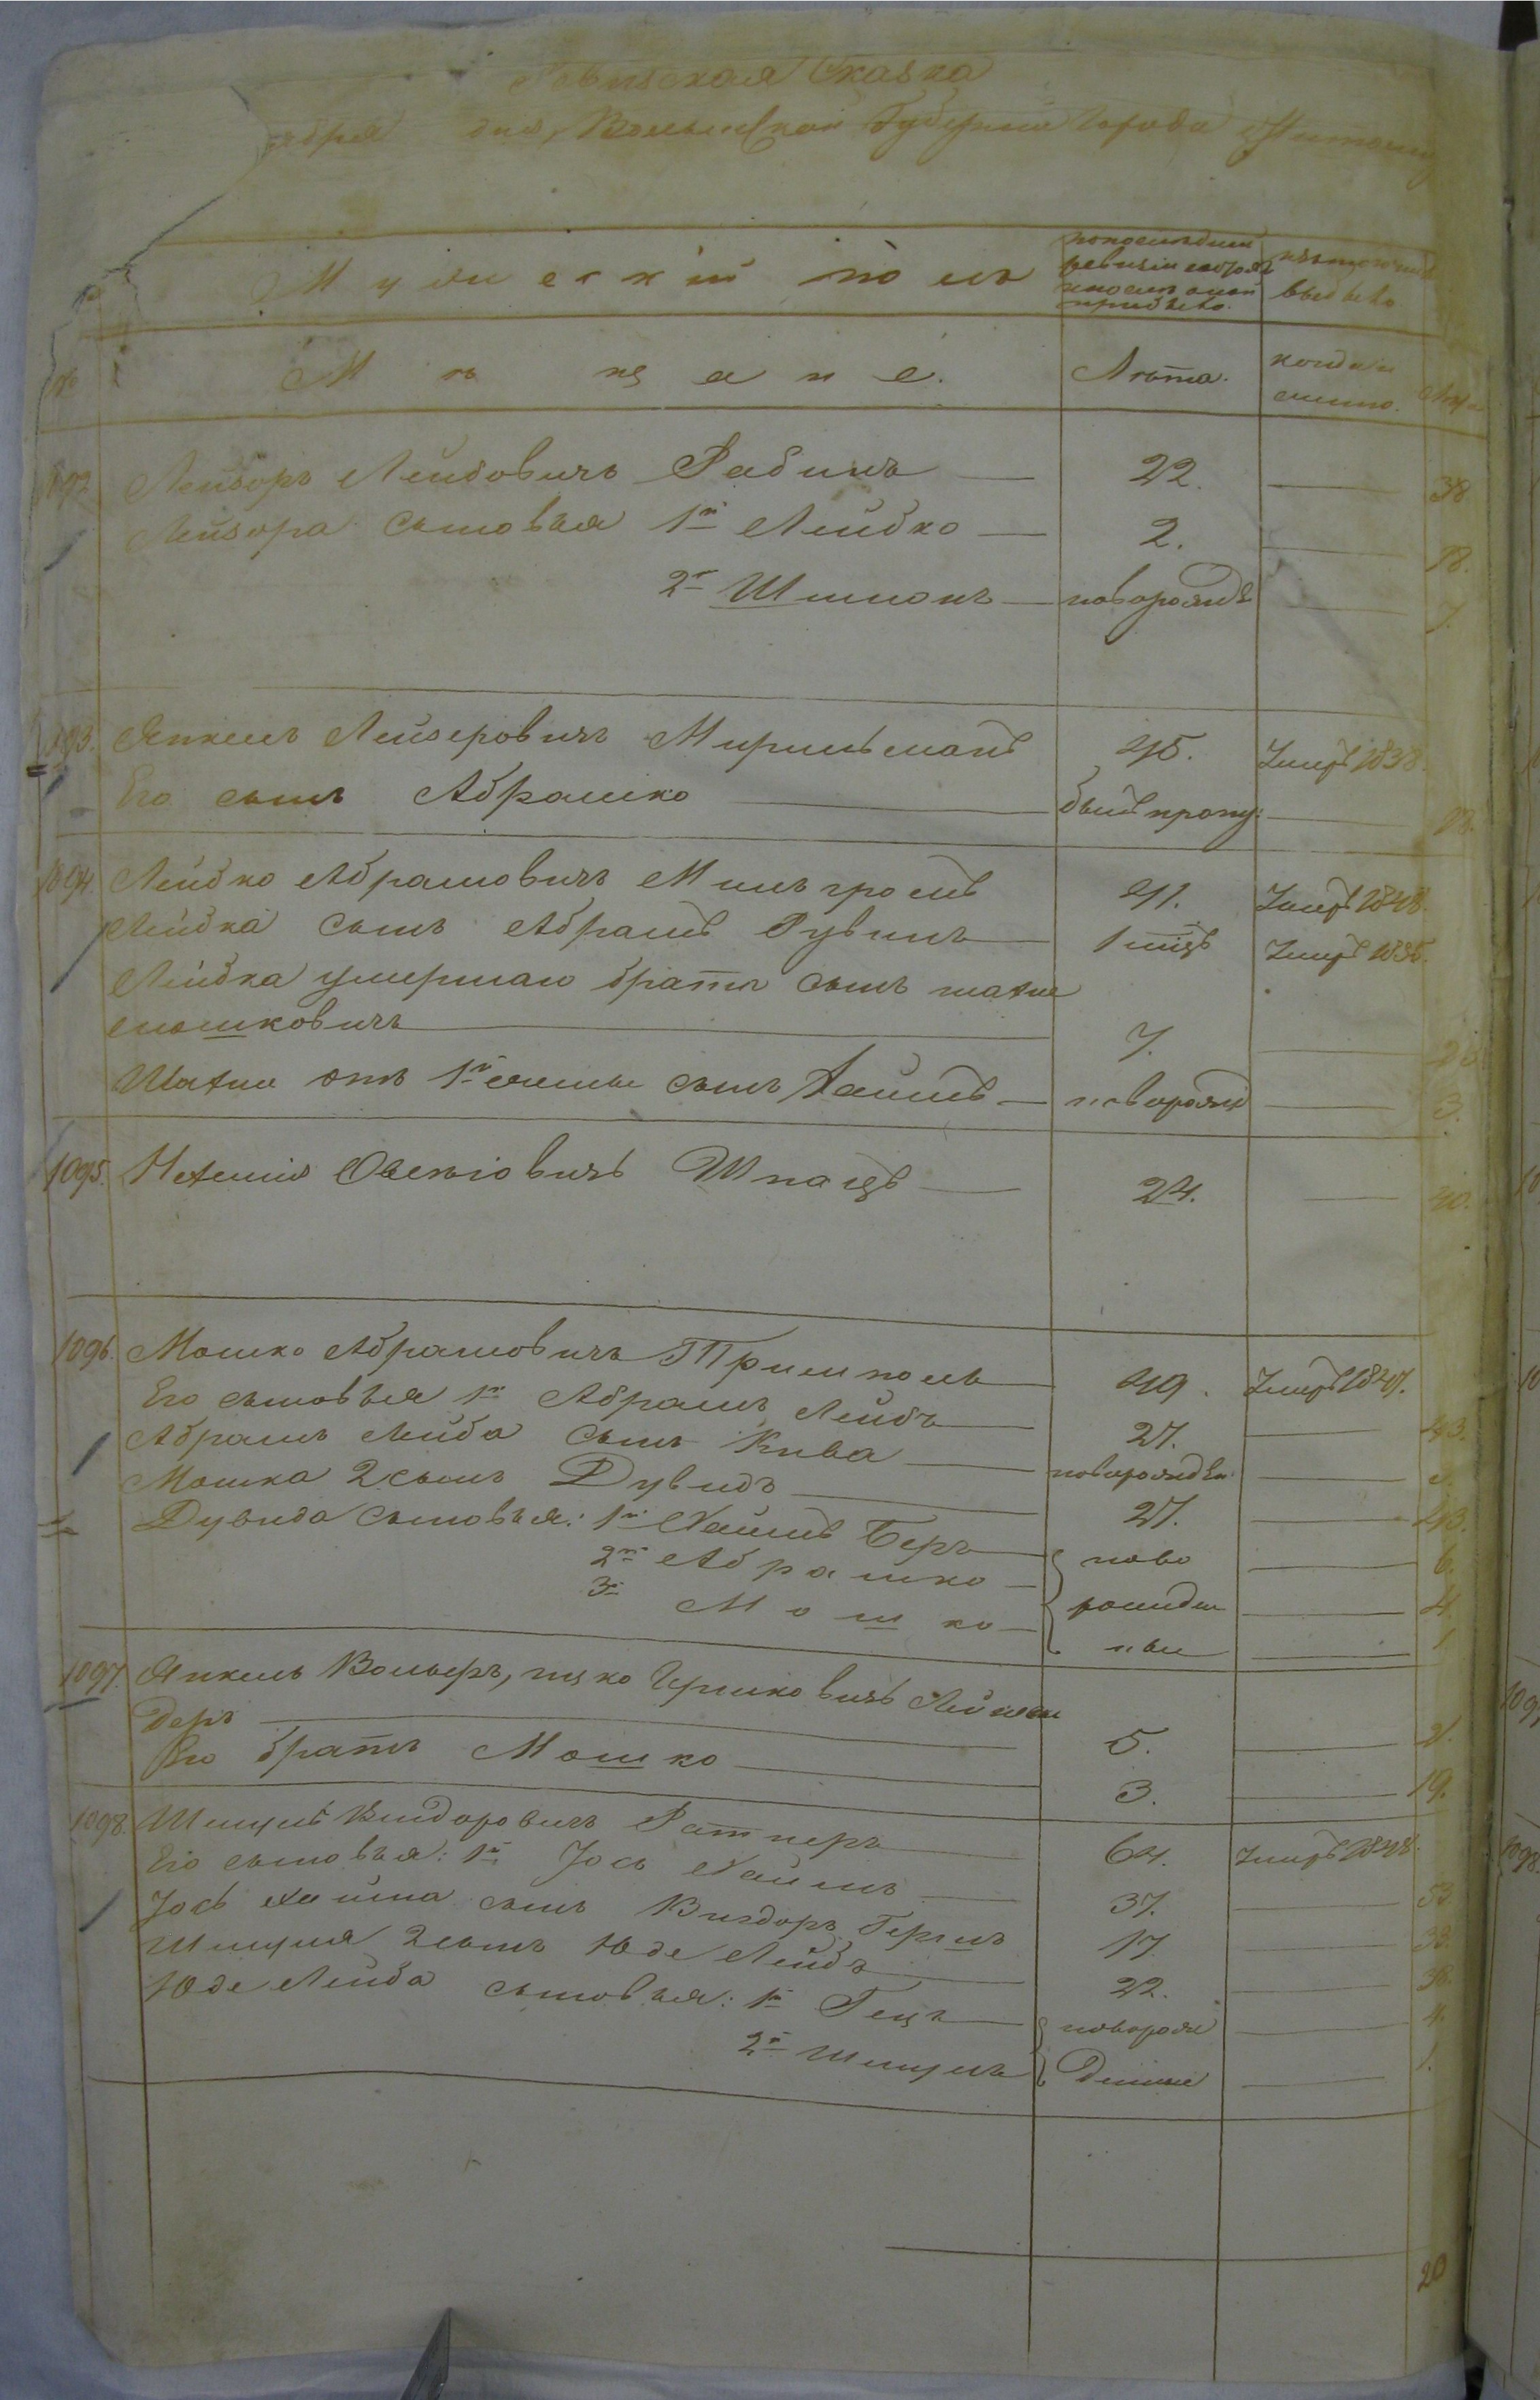 Ревизская Сказка
дня, Волынской Губернии Города Житомир
Мужескій полъ
по последней
ревизіи состоял
и после оной
прибыло.
изъ того числа
выбыло
№
Мѣщане.
Лѣта.
когда и
имянно.
Лѣта
1092 Лейзоръ Лейбовичъ Рабинъ 22. 38.
Лейзора сыновья 1й Лейбко 2. 18.
2й Шимонъ новорожде 1.
1093. Янкель Лейзеровичъ Мирельманъ 45. Умеръ 1838.
Его сынъ Абрамко былъ пропу:
1094. Лейбко Абрамовичъ Мильгромъ 41. Умеръ 1848.
Лейбка сынъ Абрамъ Рувинъ 1 мѣц Умеръ 1835.
Лейбка умершаго брата сынъ шахне
мошковичъ 7. 23
Шахни отъ 1й жены сынъ Хаимъ новорожд 3.
1095. Нехемія Овсѣіовичъ Шпацъ 24. 40.
1096. Мошко Абрамовичъ Тримполь 49. Умеръ 1847.
Его сыновья 1й Абрамъ Лейбъ 27. 43.
Абрамъ Лейба сынъ Кива новорожден 3.
Мошка 2 сынъ Дувидъ 27. 43.
Дувида сыновья: 1й Хаимъ Беръ ново 6.
2й Абрамко рожден 4.
3й Мошко ные 1
1097. Янкель Вольфъ, ицко Гершковичъ
деръ 5. 21.
Его братъ Мошко 3. 19.
1098. Шмуль Вигдоровичъ Ратнеръ 64. Умеръ 1848.
Его сыновья: 1й Іось Хаимъ 37. 53
Іось Хаима сынъ Вигдоръ Гершъ 17. 33.
Шмуля 2 сынъ Юде Лейбъ 22. 38.
Юде Лейба сыновья: 1й Гецъ новорож 4.
2й Шмуль денные 1.
20